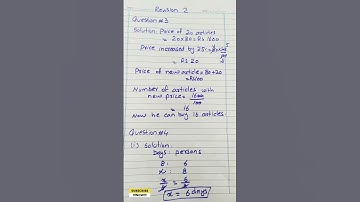 Revision 2
Question#3
Solution: Price of 20 articles
= 20×80 = Rs 1600
Price increased by 25%
= Rs 20
Price of new article = 80+20
= Rs100
Number of articles with
new price = 1600/100
= 16
Now he can buy 16 articles.
Question#4
(i) Solution
Days : persons
8 : 6
x : 8
x/8 = 6/8
x = 6 days
SUBSCRIBE